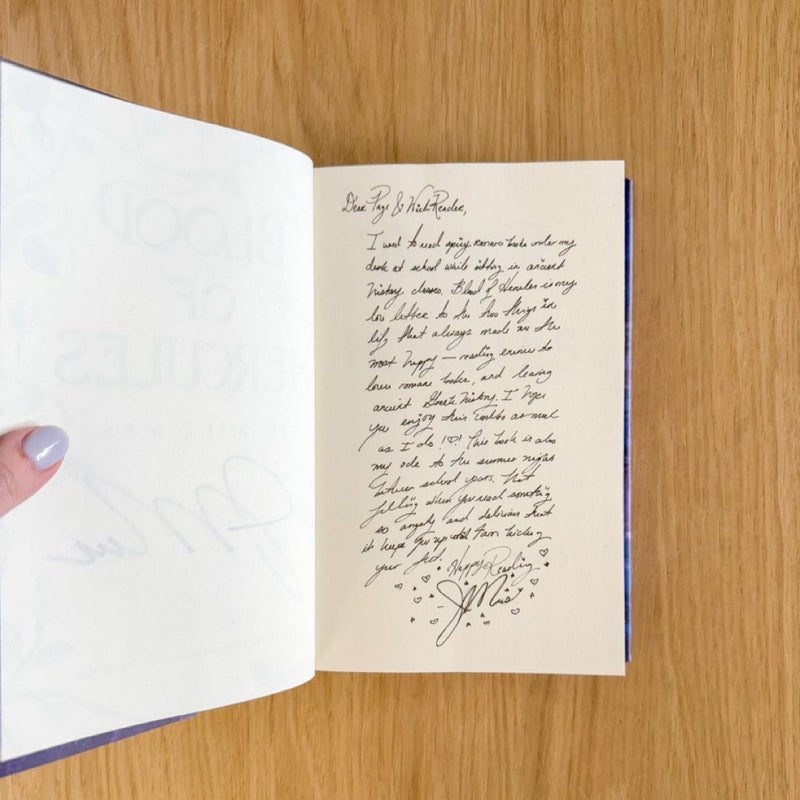 Dear Page & Wick Reader,
I used to read spicy romance books under my
desk at school while sitting in ancient
history classes. Blood of Hercules is my
love letter to the two things in
life that always made me the
most happy — reading enemies to
lovers romance books, and learning
ancient Greek history. I hope
you enjoy this as much
as I do! This book is also
my ode to the summer nights
between school years. That
feeling when you read something
so angsty and delicious that
it keeps you up until 4am kicking
your feet. Happy Reading